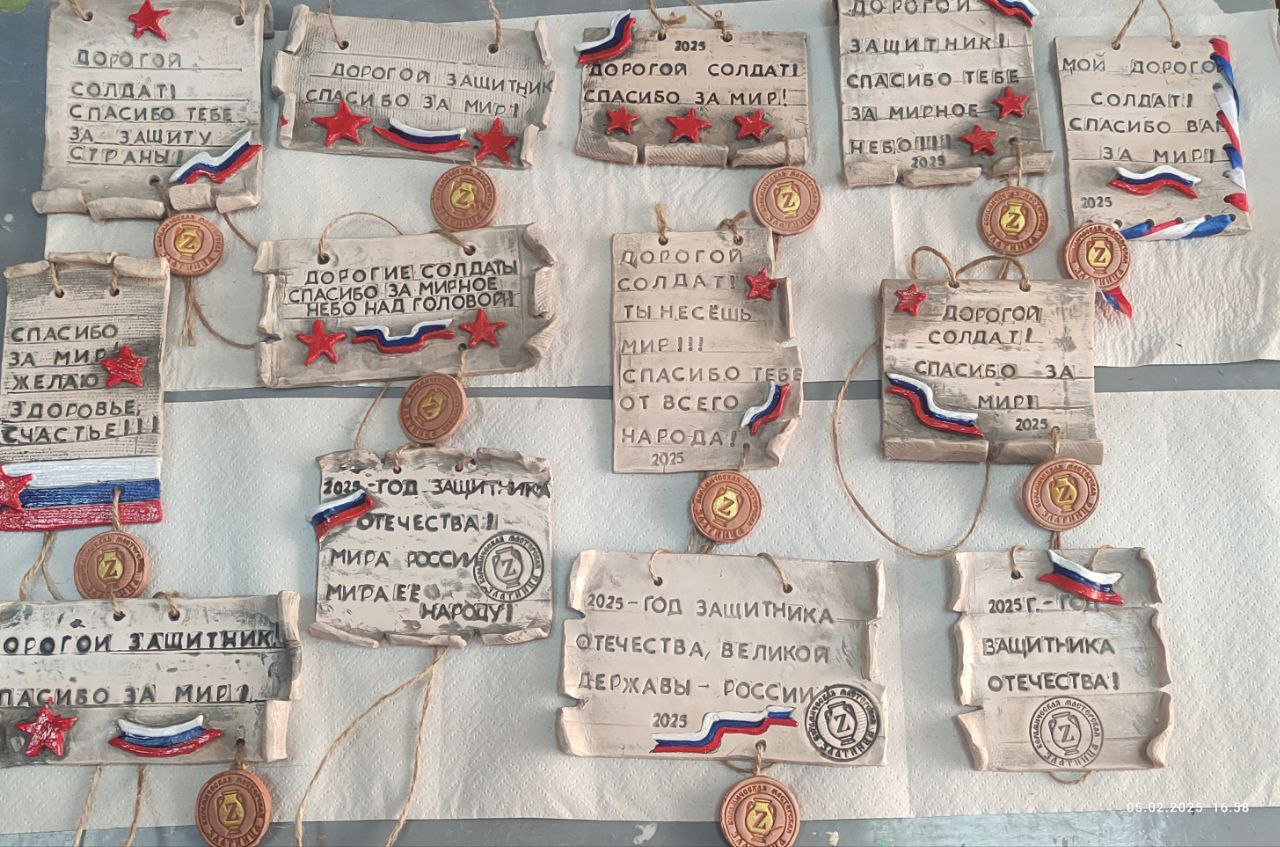 ДОРОГОЙ
СОЛДАТ!
СПАСИБО ТЕБЕ
ЗА ЗАЩИТУ
СТРАНЫ!
ДОРОГОЙ ЗАЩИТНИК
СПАСИБО ЗА МИР!
2025
ДОРОГОЙ СОЛДАТ!
СПАСИБО ЗА МИР!
ДОРОГОЙ
ЗАЩИТНИК!
СПАСИБО ТЕБЕ
ЗА МИРНОЕ
НЕБО!!!!
2025
МОЙ ДОРОГОЙ
СОЛДАТ!
СПАСИБО ВАМ
ЗА МИР!
2025
СПАСИБО
ЗА МИР!
ЖЕЛАЮ
ЗДОРОВЬЕ,
СЧАСТЬЕ!!!
ДОРОГИЕ СОЛДАТЫ
СПАСИБО ЗА МИРНОЕ
НЕБО НАД ГОЛОВОЙ!
ДОРОГОЙ
СОЛДАТ!
ТЫ НЕСЁШЬ
МИР!!!
СПАСИБО ТЕБЕ
ОТ ВСЕГО
НАРОДА!
2025
ДОРОГОЙ
СОЛДАТ!
СПАСИБО ЗА
МИР!!
2025
2025-ГОД ЗАЩИТНИКА
ОТЕЧЕСТВА!
МИРА РОССИИ
МИРА ЕЁ
НАРОДУ!
ОРОГОЙ ЗАЩИТНИК!
ПАСИБО ЗА МИР!
2025-ГОД ЗАЩИТНИКА
ОТЕЧЕСТВА, ВЕЛИКОЙ
ДЕРЖАВЫ - РОССИИ
2025
КЕРАМИЧЕСКАЯ МАСТЕРСКАЯ
Z
ЗЛАТНИЦА
2025 Г. - ГОД
ЗАЩИТНИКА
ОТЕЧЕСТВА!
КЕРАМИЧЕСКАЯ МАСТЕРСКАЯ
Z
ЗЛАТНИЦА
05.02.2025 16:58